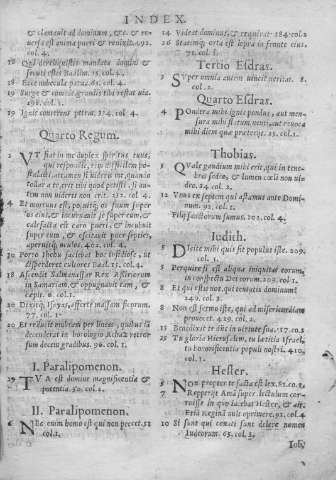 INDEX.
& clemenit ad dominum, & c. & re-
uersa est anima pueri & reuixit. 192.
col. 4.
18 Quia dereliquistis mandata domini &
secuti estis Baalim. 15. col. 4.
18 Ecce nubecula parua. 61. col. 4.
19 Surge & comede grandis tibi restat uia.
298. col. 1.
19 Ignis conterens petras. 214. col. 4.
Quarto Regum.
2 VT fiat in me duplex spiritus tuus,
qui respondit, rem difficilem po-
stulasti, attamen si uideris me, quando
tollar a te, erit tibi quod petisti, si au-
tem non uideris non erit. 212. col. 4.
4 Et mortuus est, posuitque os suum super
os eius, & incuruauit se super eum, &
calefacta est caro pueri & incubuit
super eum, & oscitauit puer septies,
aperuitque oculos. 402. col. 4.
10 Porro Iehu faciebat hoc insidiose, ut
disperderet cultores Baal. 21. col. 4.
18 Ascendit Salmanassar Rex Assiriorum
in Samariam, & oppugnauit eam, &
cepit. 6. col. 1.
20 Dixitque Isayas, afferte massam ficorum.
77. col. 1.
20 Et reduxit umbram per lineas, quibus iã
descenderat in horologio Achaz retror-
sum decem gradibus. 99. col. 1.
I. Paralipomenon.
29 TVA est domine magnificentia &
potentia. 50. col. 2.
II. Paralipomenon.
6 NEc enim homo est qui non peccet. 52
col. 2.
14 Videat dominus, & requirat. 184. col. 2
26 Statimque orta est lepra in fronte eius.
71. col. 1.
Tertio Esdras.
3 SVper omnia autem uincit ueritas. 8.
col. 2.
Quarto Esdras.
4 POndera mihi ignis pondus, aut men-
sura mihi flatum uenti, aut reuoca
mihi diem quæ præterijt. 25. col. 1.
Thobias.
5 QVale gaudium mihi erit, qui in tene-
bris sedeo, & lumen cœli non ui-
deo. 24. col. 2.
12 Vnus ex septem qui astamus ante Domi-
num. 91. col. 1.
Filij sanctorum sumus. 202. col. 4.
Iudith.
5 DIcite mihi quis sit populus iste. 209.
col. 1.
5 Perquire si est aliqua iniquitas eorum,
in conspectu Dei eorum. 209. col. 1.
8 Et qui estis uos, qui tentatis dominum?
249. col. 2.
8 Non est sermo iste, qui ad misericordiam
prouocet. 419. col. 2.
15 Benedixit te dñs in uirtute sua. 17. co. 2
15 Tu gloria Hierusalem, tu lætitia Israel,
tu honorificentia populi nostri. 410.
col. 1.
Hester.
5 NOn propter te facta est lex. 82. co. 2.
7 Repperit Amã super lectulum cor-
ruisse in quo iacebat Hester, & ait.
Etiã Reginã uult opprimere. 92. col. 4
10 Hi sunt qui conati sunt delere nomen
Iudeorum. 65. col. 3.
Iob.